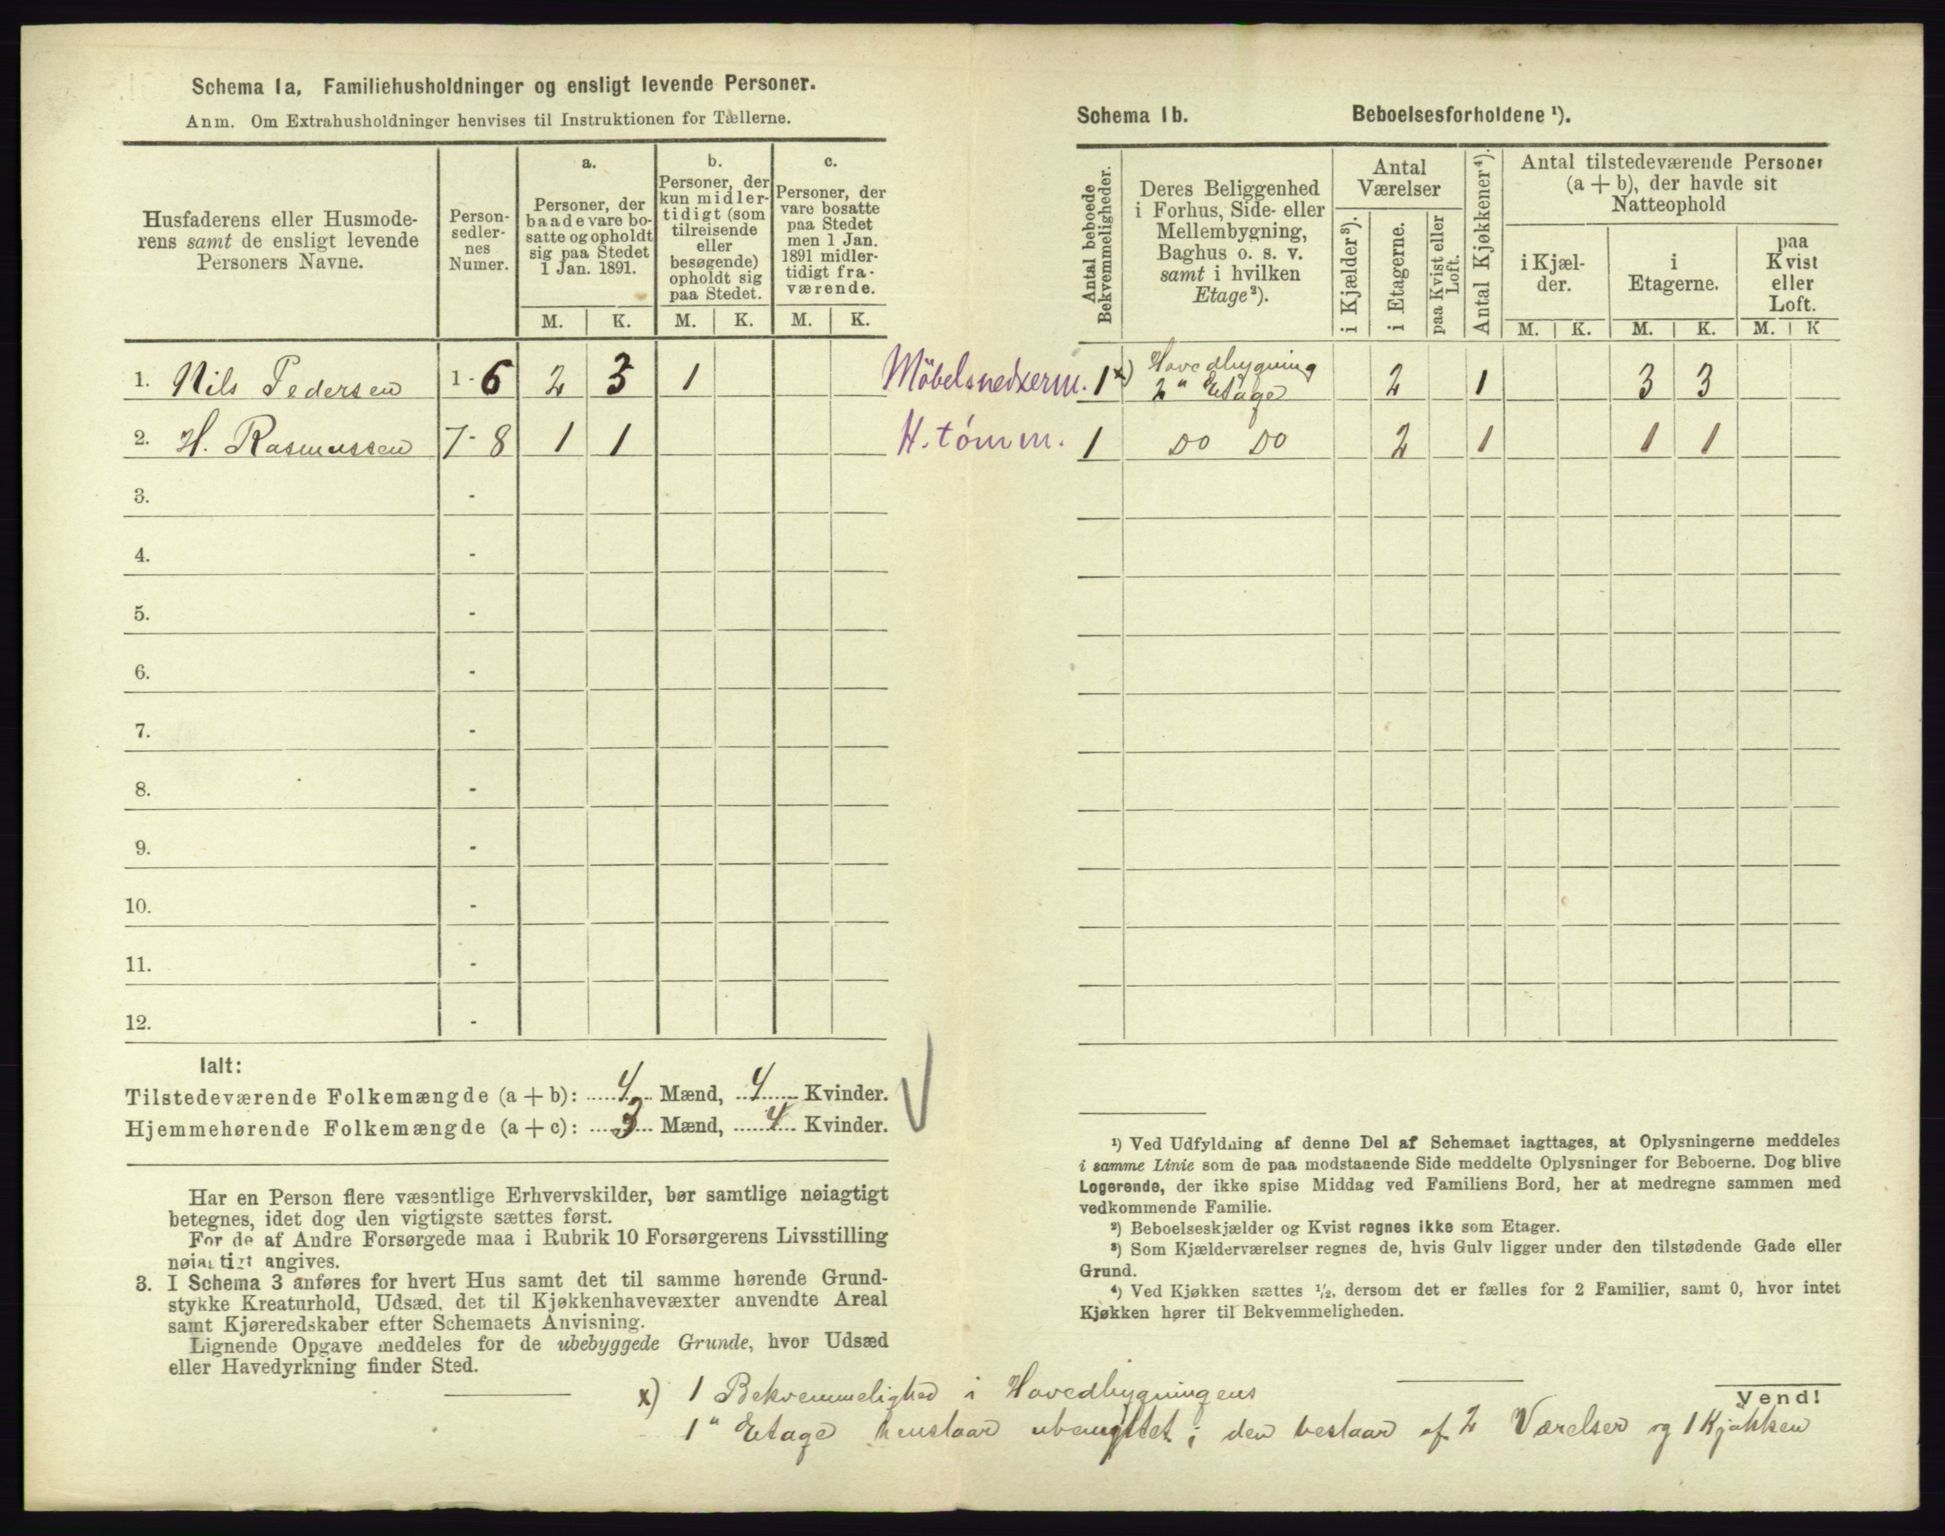 Schema 1a. Familiehusholdninger og ensligt levende Personer.
Anm. Om Extrahusholdninger henvises til Instruktionen for Tællerne.
Husfaderens eller Husmode-
rens samt de ensligt levende
Personers Navne.
Person-
sedler-
nes
Numer.
a.
Personer, der
baade vare bo-
satte og opholdt
sig paa Stedet
1 Jan. 1891.
b.
Personer, der
kun midler-
tidigt (som
tilreisende
eller
besøgende)
opholdt sig
paa Stedet.
c.
Personer, der
vare bosatte
paa Stedet
men 1 Jan.
1891 midler-
tidigt fra-
værende.
M. K. M. K. M. K.
1. Nils Pedersen 1 - 6 2 3 1 Möbelsnedkerm.
2. H. Rasmussen 7 - 8 1 1 H. tømm.
3. -
4. -
5. -
6. -
7. -
8. -
9. -
10. -
11. -
12. -
Ialt:
Tilstedeværende Folkemængde (a + b): 4 Mænd, 4 Kvinder.
Hjemmehørende Folkemængde (a + c): 3 Mænd, 4 Kvinder.
Har en Person flere væsentlige Erhvervskilder, bør samtlige nøiagtigt
betegnes, idet dog den vigtigste sættes først.
For de af Andre Forsørgede maa i Rubrik 10 Forsørgerens Livsstilling
nøiagtigt angives.
3. I Schema 3 anføres for hvert Hus samt det til samme hørende Grund-
stykke Kreaturhold, Udsæd, det til Kjøkkenhavevæxter anvendte Areal
samt Kjøreredskaber efter Schemaets Anvisning.
Lignende Opgave meddeles for de ubebyggede Grunde, hvor Udsæd
eller Havedyrkning finder Sted.
Schema 1b. Beboelsesforholdene ¹).
Antal beboede
Bekvemmeligheder.
Deres Beliggenhed
i Forhus, Side- eller
Mellembygning,
Baghus o. s. v.
samt i hvilken
Etage²).
Antal
Værelser
i Kjælder³).
i Etagerne.
paa Kvist eller
Loft.
Antal Kjøkkener⁴).
Antal tilstedeværende Personer
(a + b), der havde sit
Natteophold
i Kjæl-
der.
i
Etagerne.
paa
Kvist
eller
Loft.
M. K. M. K. M. K
1 x) Hovedbygning
2" Etage 2 1 3 3
1 Do Do 2 1 1 1
¹) Ved Udfyldning af denne Del af Schemaet iagttages, at Oplysningerne meddeles
i samme Linie som de paa modstaaende Side meddelte Oplysninger for Beboerne. Dog blive
Logerende, der ikke spise Middag ved Familiens Bord, her at medregne sammen med
vedkommende Familie.
²) Beboelseskjælder og Kvist regnes ikke som Etager.
³) Som Kjælderværelser regnes de, hvis Gulv ligger under den tilstødende Gade eller
Grund.
⁴) Ved Kjøkken sættes ½, dersom det er fælles for 2 Familier, samt 0, hvor intet
Kjøkken hører til Bekvemmeligheden.
Vend!
x) 1 Bekvemmelighed i Hovedbygningens
1" Etage henstaar ubenyttet; den bestaar af 2 Værelser og 1 Kjøkken